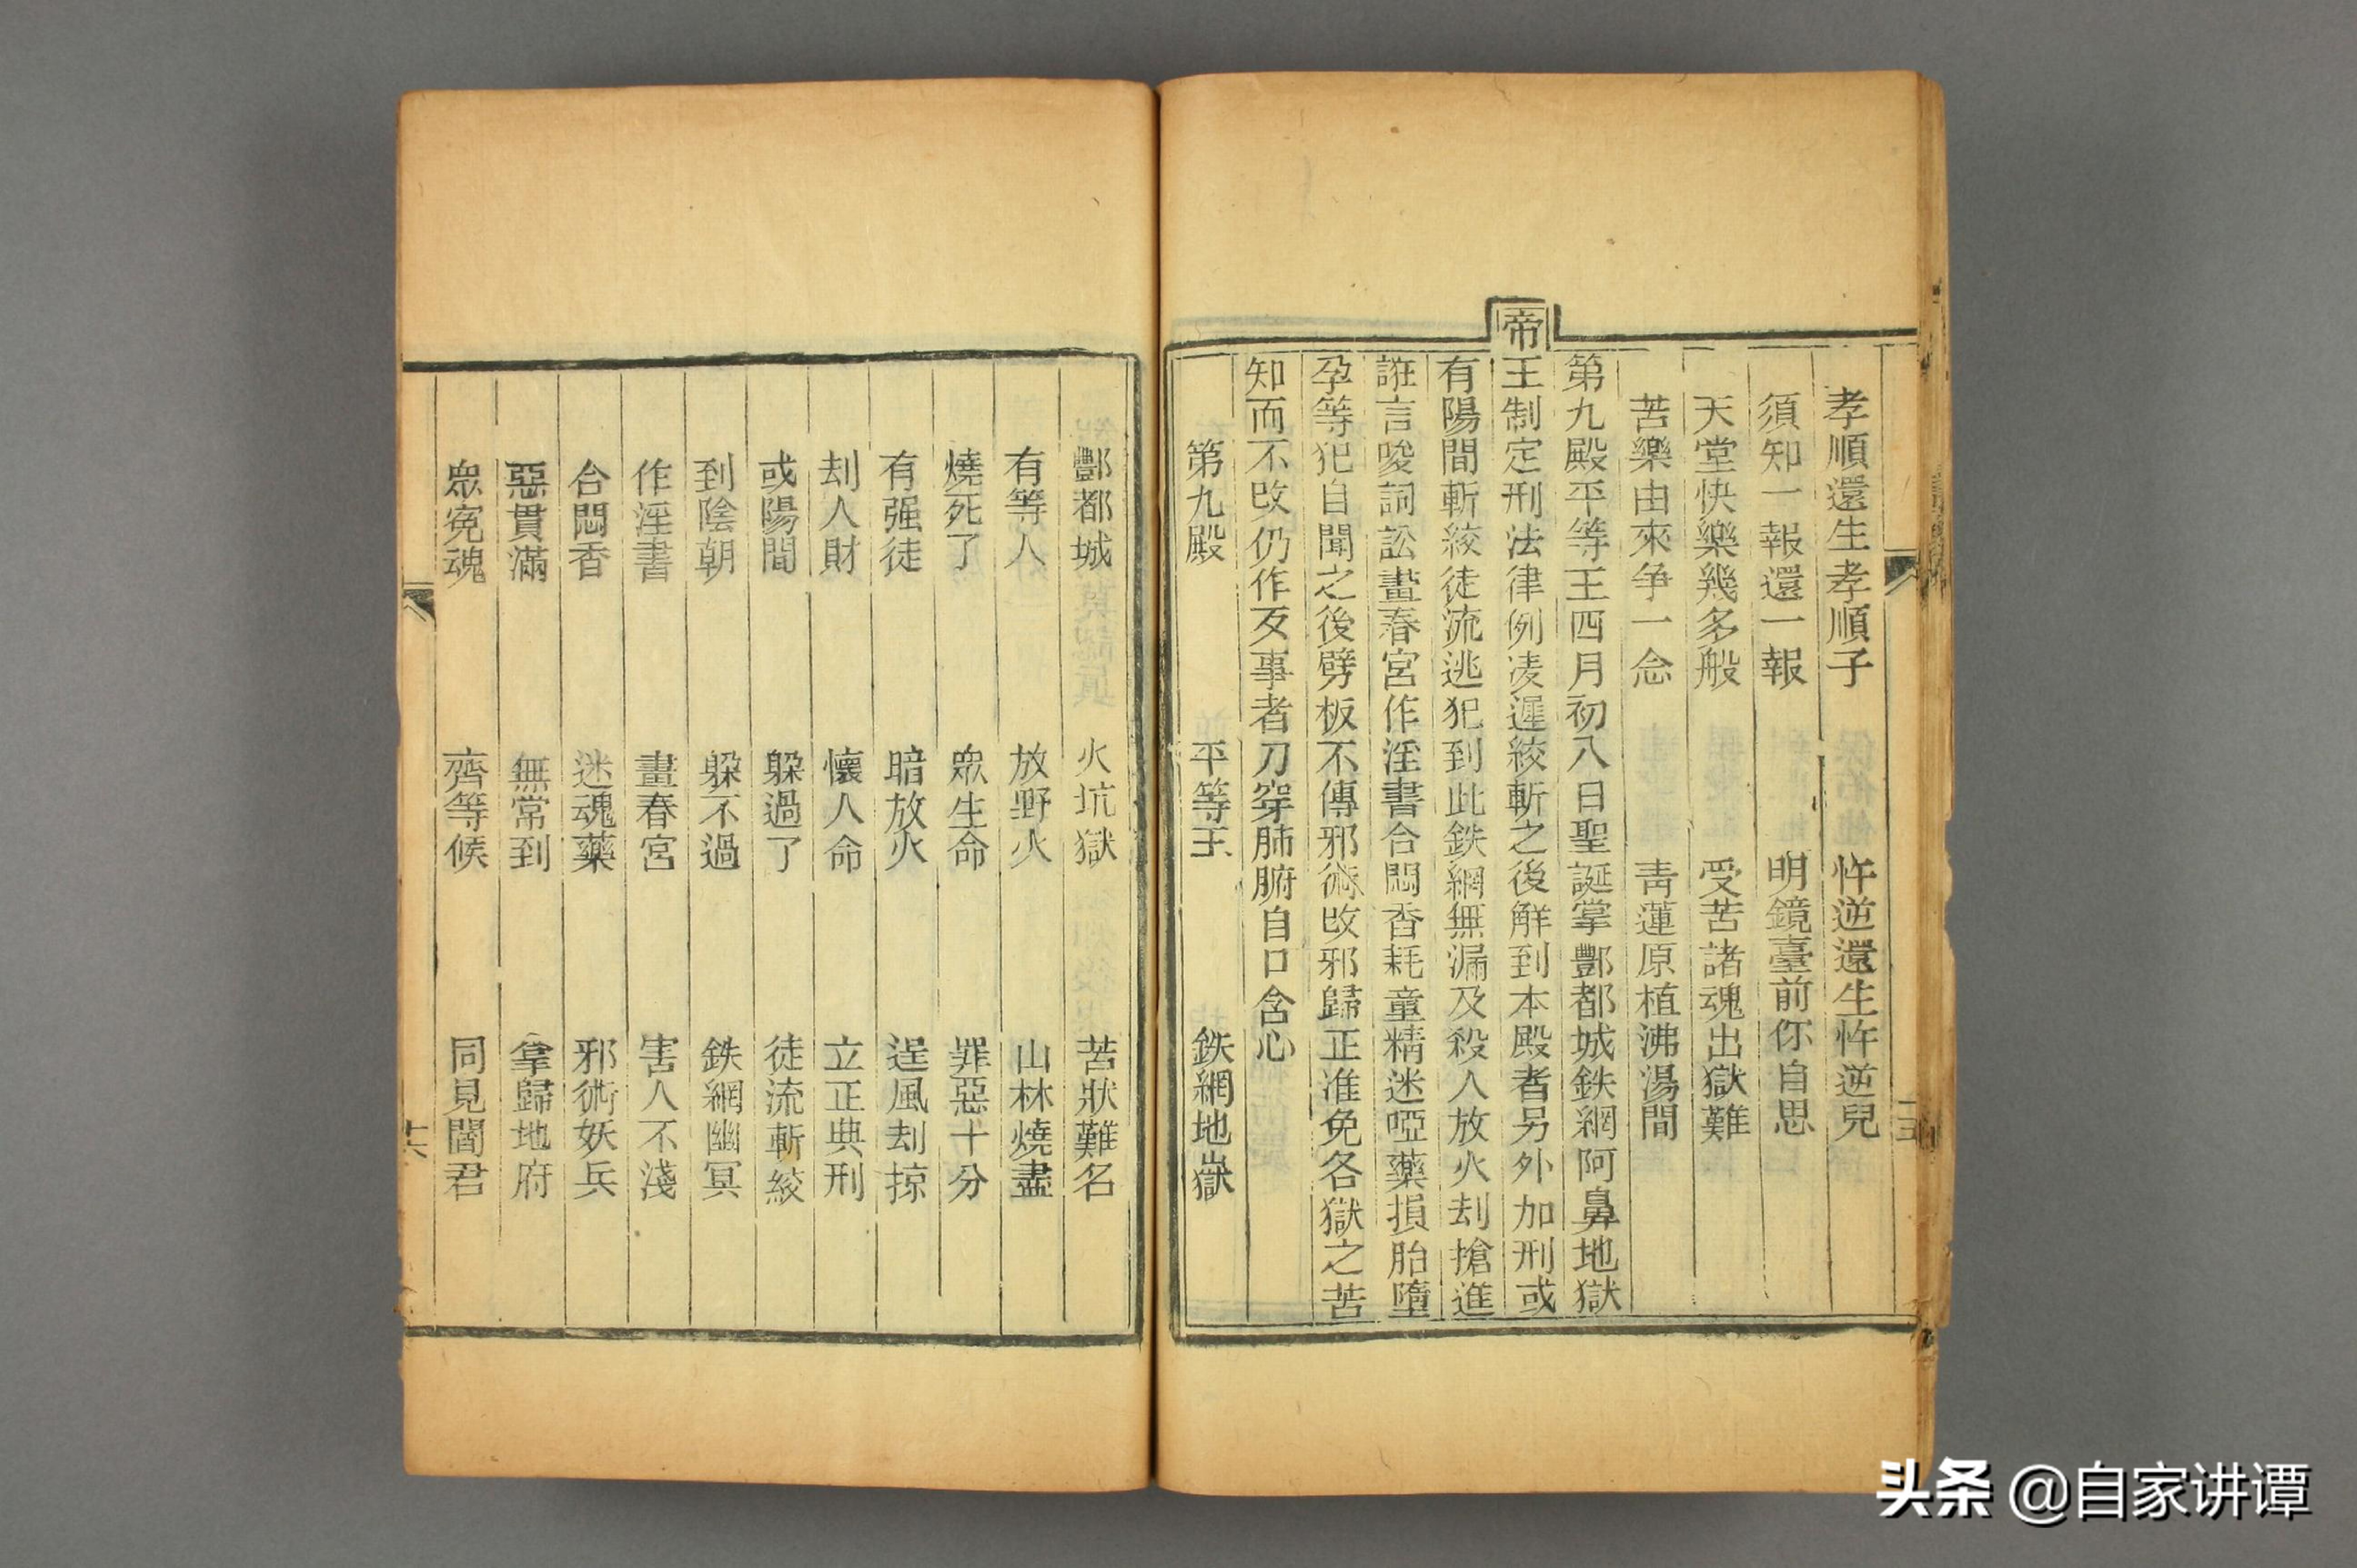 孝順還生孝順子 忤逆還生忤逆兒
須知一報還一報 明鏡臺前你自思
天堂快樂幾多般 受苦諸魂出獄難
苦樂由來争一念 青蓮原植沸湯間
第九殿平等王四月初八日聖誕掌酆都城鉄網阿鼻地獄
帝王制定刑法律例凌遲絞斬之後解到本殿者另外加刑或
有陽間斬絞徒流逃犯到此鉄網無漏及殺人放火刦搶進
誑言唆詞訟畫春宮作淫書合悶香耗童精迷啞藥損胎墮
孕等犯自聞之後劈板不傳邪術改邪歸正准免各獄之苦
知而不改仍作歹事者刀穿肺腑自口含心
第九殿 平等王 鉄網地嶽
酆都城 火坑獄 苦狀難名
有等人 放野火 山林燒盡
燒死了 眾生命 罪惡十分
有强徒 暗放火 逞風刦掠
刦人財 懷人命 立正典刑
或陽間 躲過了 徒流斬絞
到陰朝 躲不過 鉄網幽冥
作淫書 畫春宮 害人不淺
合悶香 迷魂藥 邪術妖兵
惡貫滿 無常到 拿歸地府
眾冤魂 齊等候 同見閻君
十六
头条 @自家讲谭